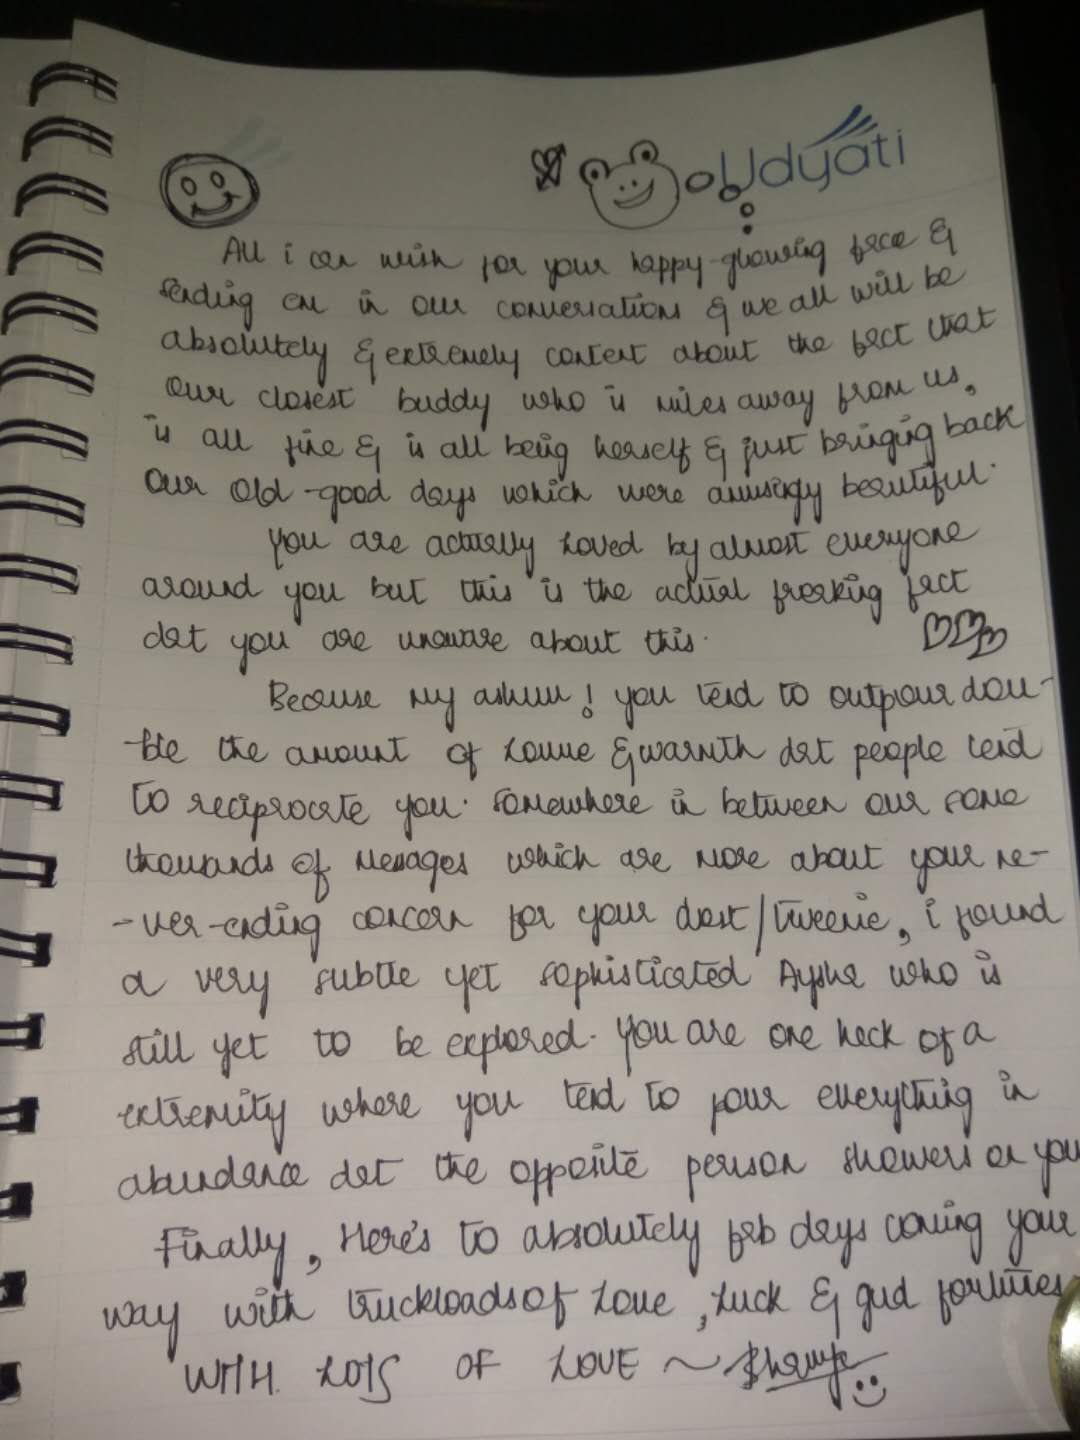 Udyati
All i can wish for your happy-glowing face &
sending em in our conversations & we all will be
absolutely & extremely content about the fact that
our closest buddy who is miles away from us,
is all fine & is all being herself & just bringing back
our old-good days which were amusingy beautiful.
You are actually loved by almost everyone
around you but this is the actual freaking fact
dat you are unaware about this.
Because my ashuu! you tend to outpour dou-
-ble the amount of Louve & warmth dat people tend
to reciprocate you. Somewhere in between our some
thousands of messages which are more about your ne-
-ver-ending concern for your dost/tweenie, i found
a very subtle yet sophisticated who is
still yet to be explored. You are one heck of a
extremity where you tend to pour everything in
abundance dat the opposite person showers on you
Finally, Here's to absolutely fab days coming your
way with truckloads of Love, Luck & gud
WITH LOTS OF LOVE ~